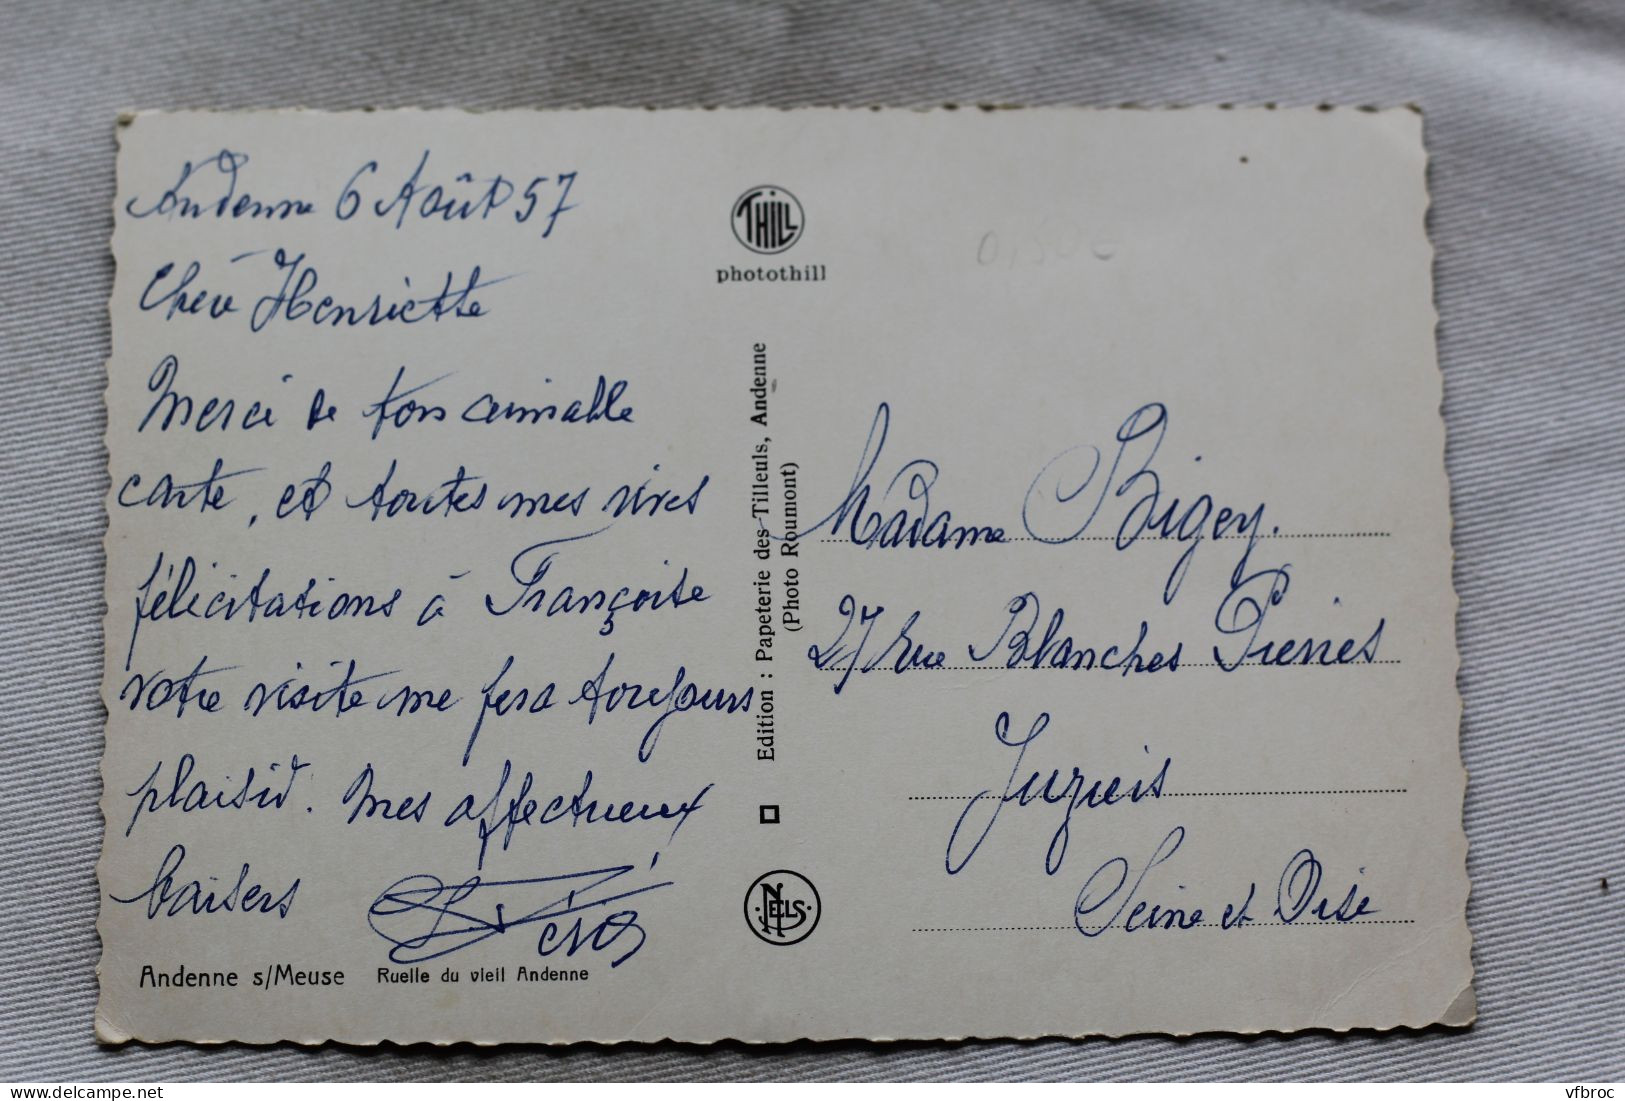 Andenne 6 Août 57
Chère Henriette
Merci de ton aimable
carte, et toutes mes vives
félicitations à Françoise
votre visite me fera toujours
plaisir. Mes affectueux
baisers
Andenne s/Meuse Ruelle du vieil Andenne
THILL
photothill
Edition : Papeterie des Tilleuls, Andenne
(Photo Roumont)
NELS
0,50€
Madame Bigey.
27 rue Blanches Pierres
Juziers
Seine et Oise
delcampe.net
vfbroc